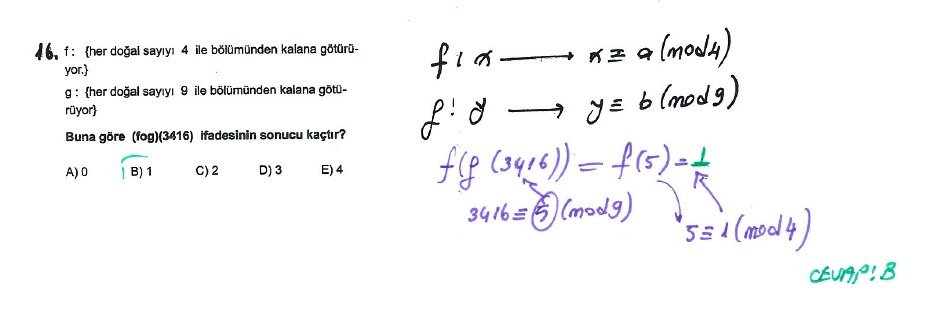 16. f : {her doğal sayıyı 4 ile bölümünden kalana götürü-
yor.}
g : {her doğal sayıyı 9 ile bölümünden kalana götü-
rüyor}
Buna göre (fog)(3416) ifadesinin sonucu kaçtır?
A) 0 B) 1 C) 2 D) 3 E) 4
f : x → x ≡ a (mod 4)
g : y → y ≡ b (mod 9)
f(g (3416)) = f(5) = 1
3416 ≡ 5 (mod 9)
5 ≡ 1 (mod 4)
CEVAP: B